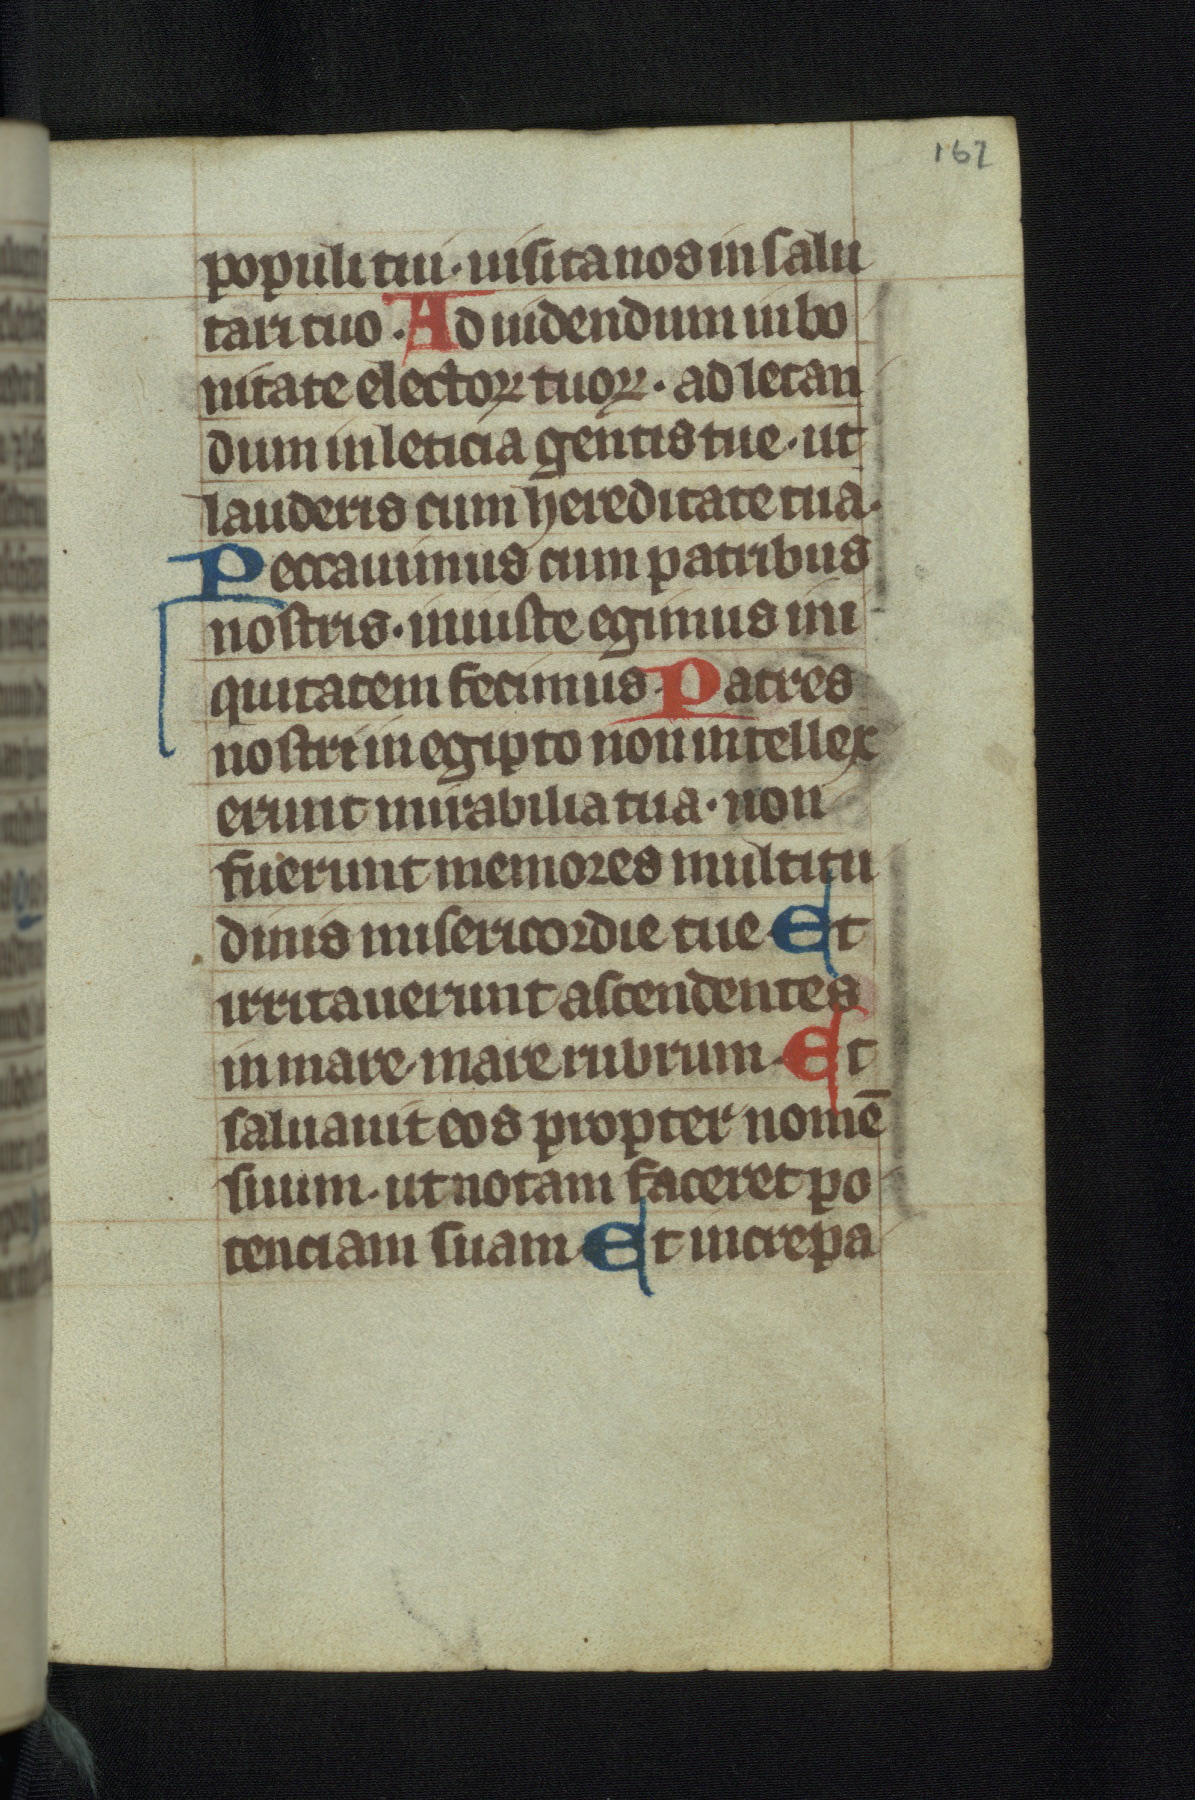 162
populi tui · uisita nos in salu
tari tuo · Ad uidendum in bo
nitate electoꝝ tuoꝝ · ad letan
dum in leticia gentis tue · ut
lauderis cum hereditate tua ·
Peccauimus cum patribus
nostris · iniuste egimus ini
quitatem fecimus · Patres
nostri in egipto non intellex
erunt mirabilia tua · non
fuerunt memores multitu
dinis misericordie tue Et
irritauerunt ascendentes
in mare · mare rubrum · Et
saluauit eos propter nomē
suum · ut notam faceret po
tenciam suam Et increpa